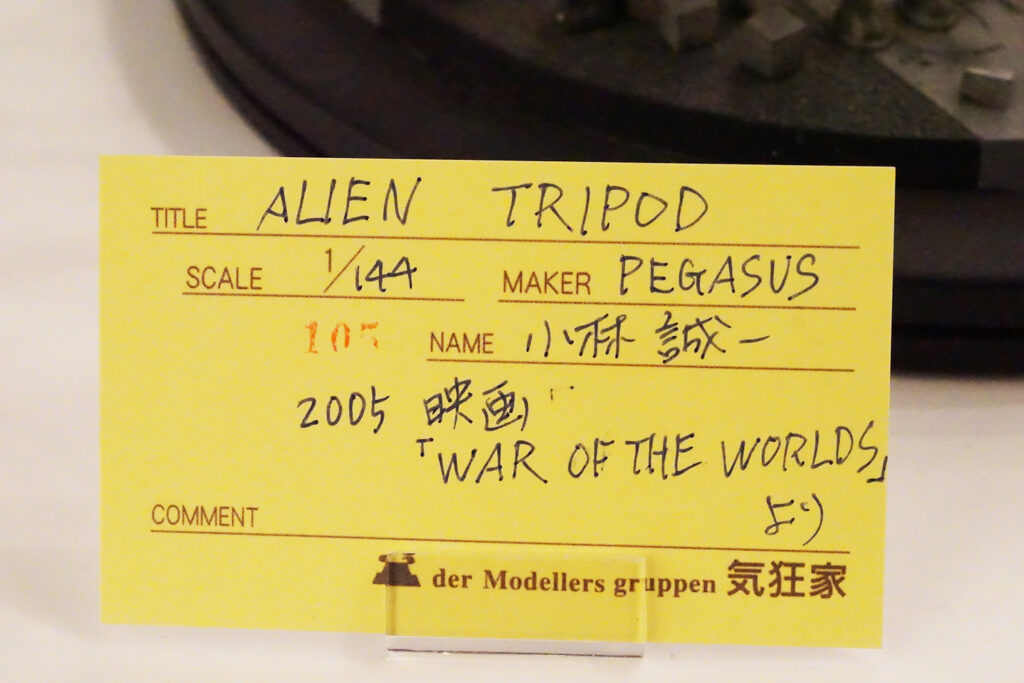 TITLE ALIEN TRIPOD
SCALE 1/144 MAKER PEGASUS
105 NAME 小林 誠一
2005 映画
「WAR OF THE WORLDS」
より
COMMENT
der Modellers gruppen 気狂家